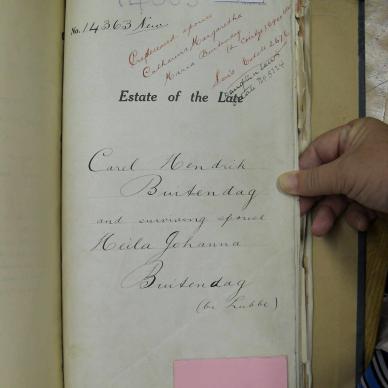 No. 14363 New
Predeceased spouse
Catharina Margaretha
Maria Buitendag
Estate of the Late
Carel Hendrik
Buitendag
and surviving spouse
Heila Johanna
Buitendag
(br Lubbe)